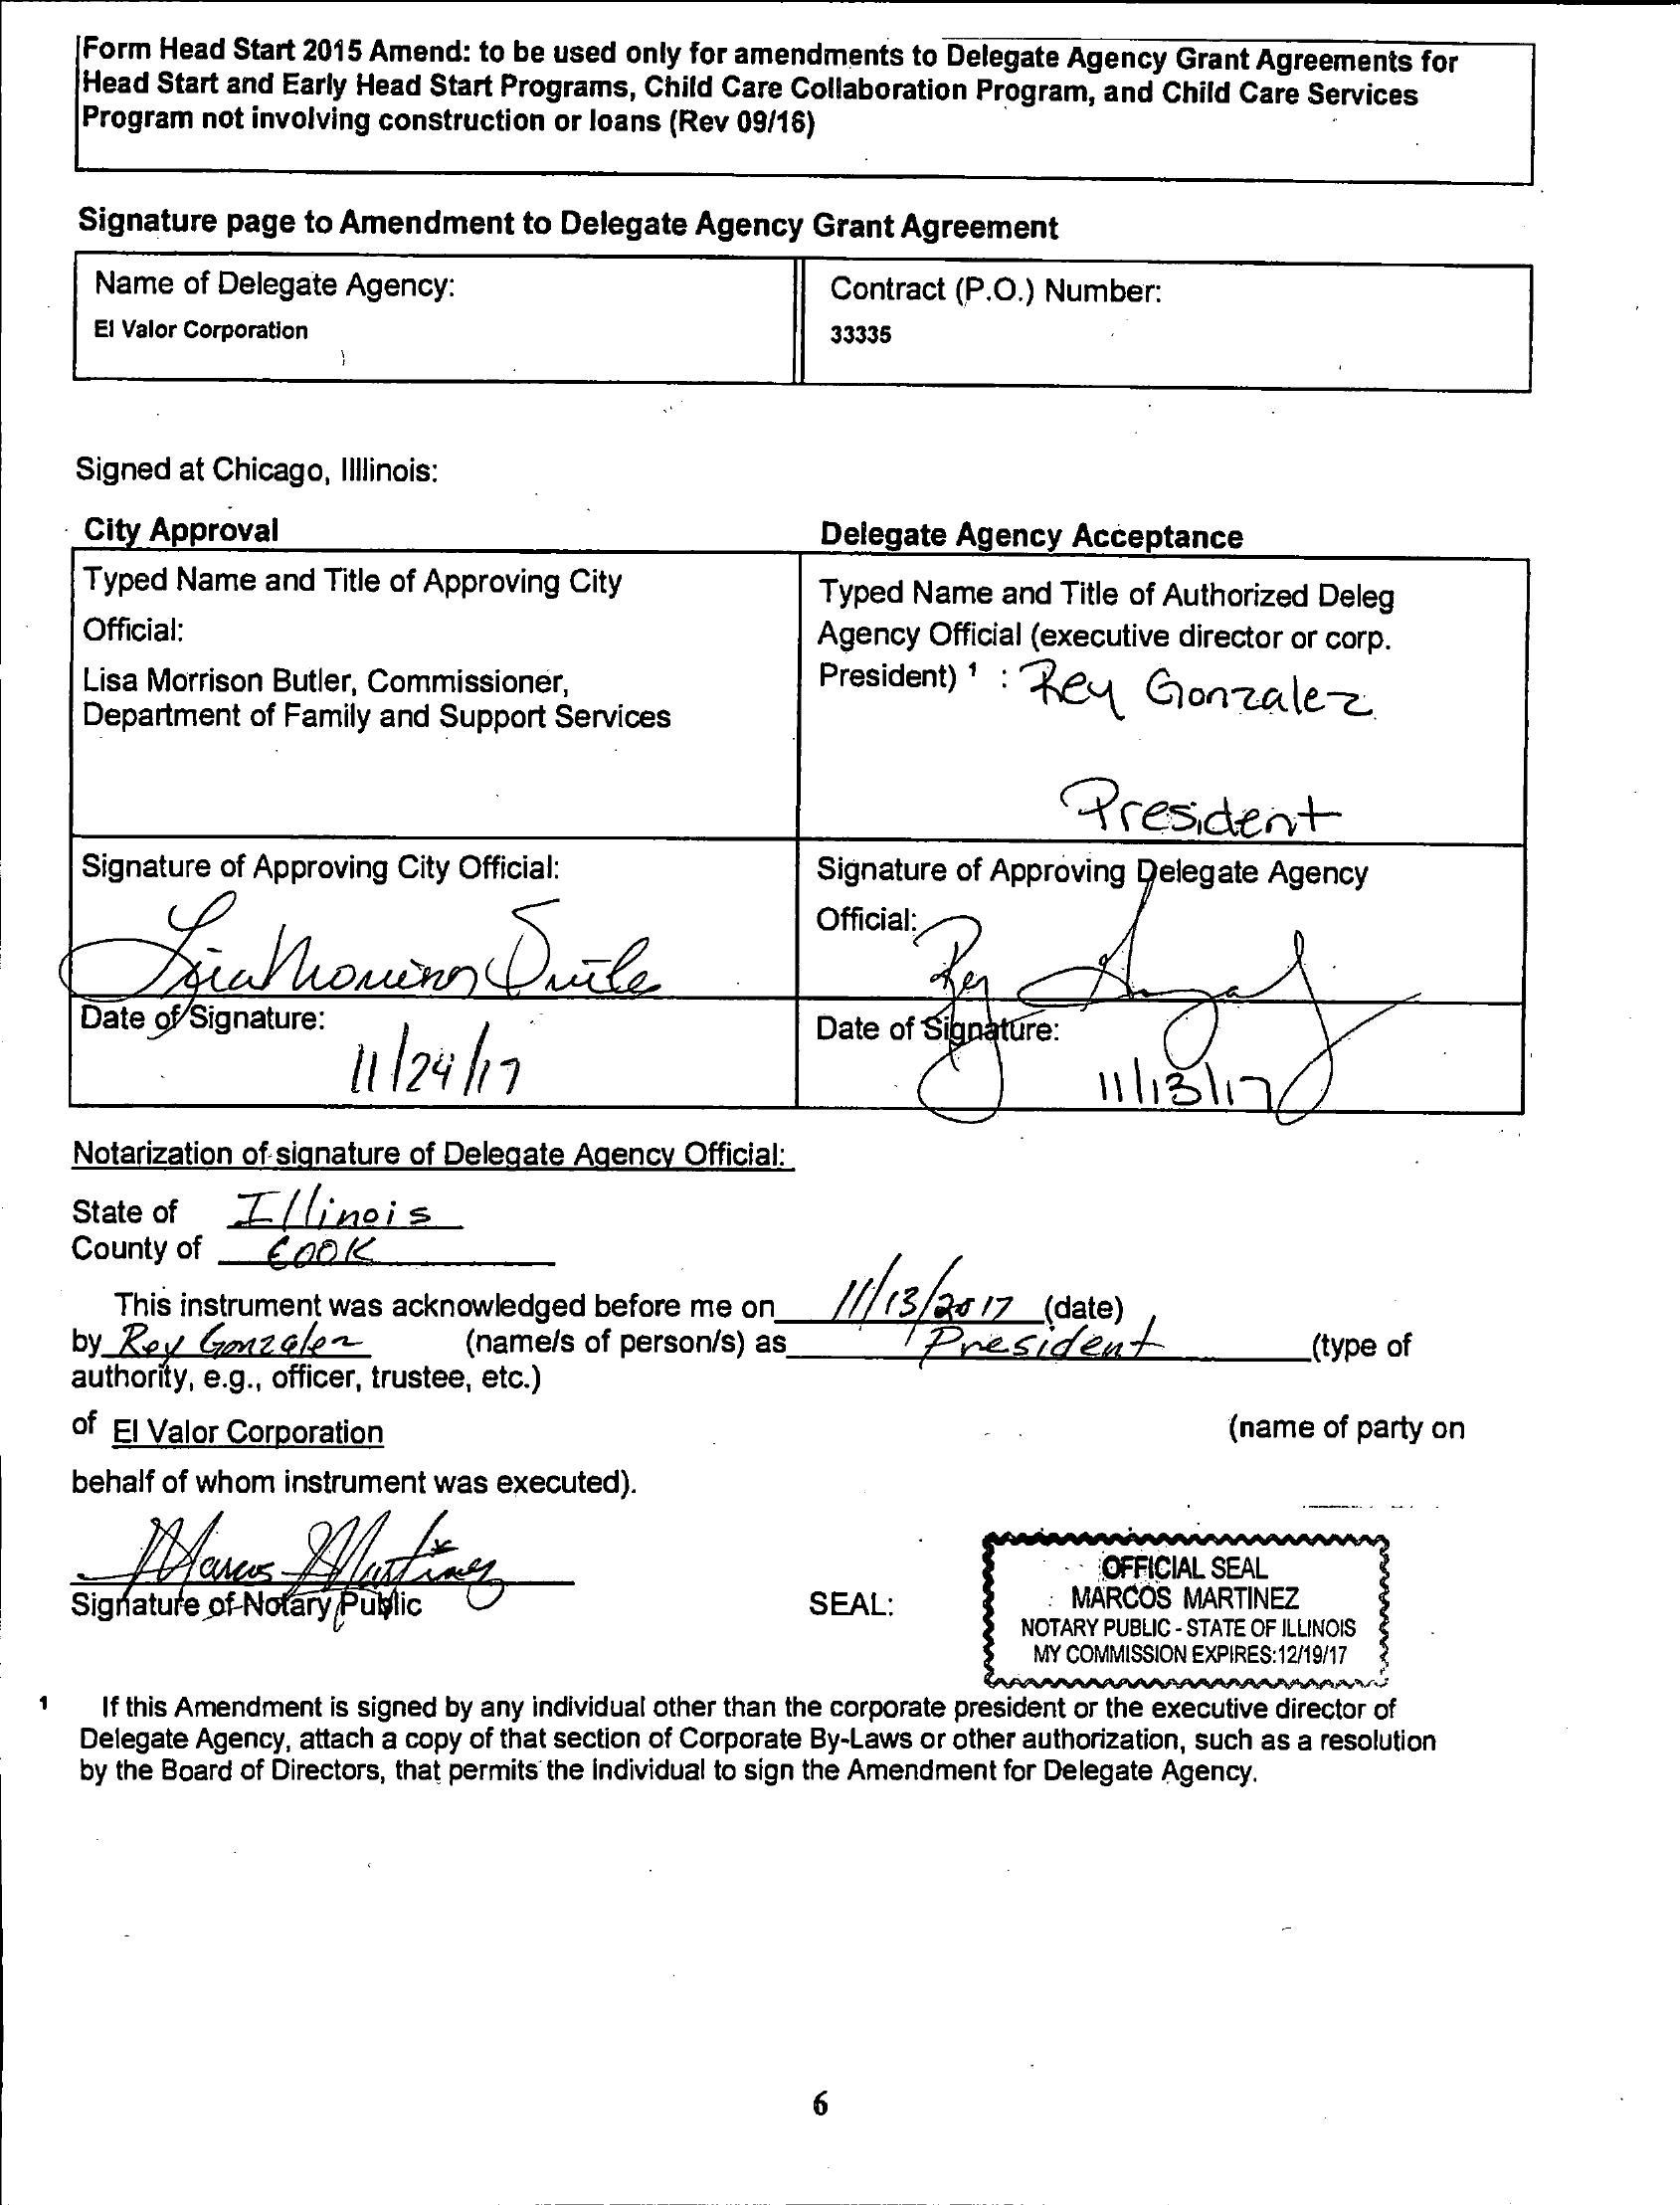 Form Head Start 2015 Amend: to be used only for amendments to Delegate Agency Grant Agreements for
Head Start and Early Head Start Programs, Child Care Collaboration Program, and Child Care Services
Program not involving construction or loans (Rev 09/16)
Signature page to Amendment to Delegate Agency Grant Agreement
Name of Delegate Agency:
El Valor Corporation
Contract (P.O.) Number:
33335
Signed at Chicago, Illlinois:
City Approval
Typed Name and Title of Approving City
Official:
Lisa Morrison Butler, Commissioner,
Department of Family and Support Services
Delegate Agency Acceptance
Typed Name and Title of Authorized Deleg
Agency Official (executive director or corp.
President) 1 : Rey Gonzalez
President
Signature of Approving City Official:
Lisa Morrison Butler
Date of Signature:
11/24/17
Signature of Approving Delegate Agency
Official:
Rey Gonzalez
Date of Signature:
11/13/17
Notarization of signature of Delegate Agency Official:
State of Illinois
County of COOK
This instrument was acknowledged before me on 11/13/2017 (date)
by Rey Gonzalez (name/s of person/s) as President (type of
authority, e.g., officer, trustee, etc.)
of El Valor Corporation (name of party on
behalf of whom instrument was executed).
Marcos Martinez
Signature of Notary Public
SEAL:
OFFICIAL SEAL
MARCOS MARTINEZ
NOTARY PUBLIC - STATE OF ILLINOIS
MY COMMISSION EXPIRES:12/19/17
1 If this Amendment is signed by any individual other than the corporate president or the executive director of
Delegate Agency, attach a copy of that section of Corporate By-Laws or other authorization, such as a resolution
by the Board of Directors, that permits the individual to sign the Amendment for Delegate Agency.
6